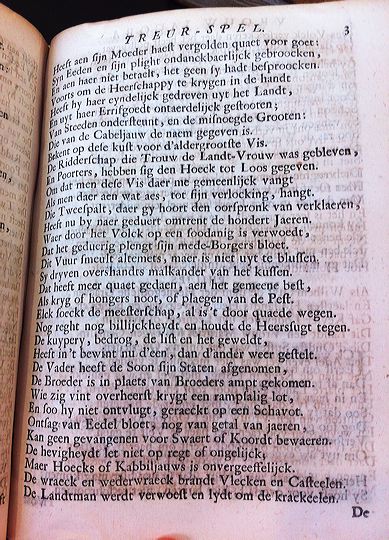 TREUR-SPEL. 3
Heeft aen sijn Moeder haest vergolden quaet voor goet:
Syn Eeden en sijn plight ondanckbaerlijck gebroocken,
En aen haer niet betaelt, het geen sy hadt besproocken.
Voorts om de Heerschappy te krygen in de handt
Heeft hy haer eyndelijck gedreven uyt het Landt,
En uyt haer Errefgoedt ontaerdelijck gestooten;
Van Steeden ondersteunt, en de misnoegde Grooten:
Die van de Cabeljauw de naem gegeven is.
Bekent op dese kust voor d'aldergrootste Vis.
De Ridderschap die Trouw de Landt-Vrouw was gebleven,
En Poorters, hebben sig den Hoeck tot Loos gegeven.
Om dat men dese Vis daer me gemeenlijck vangt
Als men daer aen wat aes, tot sijn verlocking, hangt.
Die Tweespalt, daer gy hoort den oorspronk van verklaeren,
Heeft nu by naer geduert ontrent de hondert Jaeren.
Waer door het Volck op een soodanig is verwoedt,
Dat het geduerig plengt sijn mede-Borgers bloet.
Dit Vuur smeult altemets, maer is niet uyt te blussen.
Sy dryven overshandts malkander van het kussen.
Dat heeft meer quaet gedaen, aen het gemeene best,
Als kryg of hongers noot, of plaegen van de Pest.
Elck soeckt de meesterschap, al is't door quaede wegen.
Nog reght nog billijckheydt en houdt de Heersugt tegen.
De kuypery, bedrog, de list en het geweldt,
Heeft in 't bewint nu d'een, dan d'ander weer gestelt.
De Vader heeft de Soon sijn Staten afgenomen,
De Broeder is in plaets van Broeders ampt gekomen.
Wie zig vint overheert krygt een rampsalig lot,
En soo hy niet ontvlugt, geraeckt op een Schavot.
Ontsag van Eedel bloet, nog van getal van jaeren,
Kan geen gevangenen voor Swaert of Koordt bewaeren.
De hevigheydt let niet op regt of ongelijck,
Maer Hoecks of Kabbiljauws is onvergeeffelijck.
De wraeck en wederwraeck brandt Vlecken en Casteelen.
De Landtman werdt verwoest en lydt om de krackeelen.
De